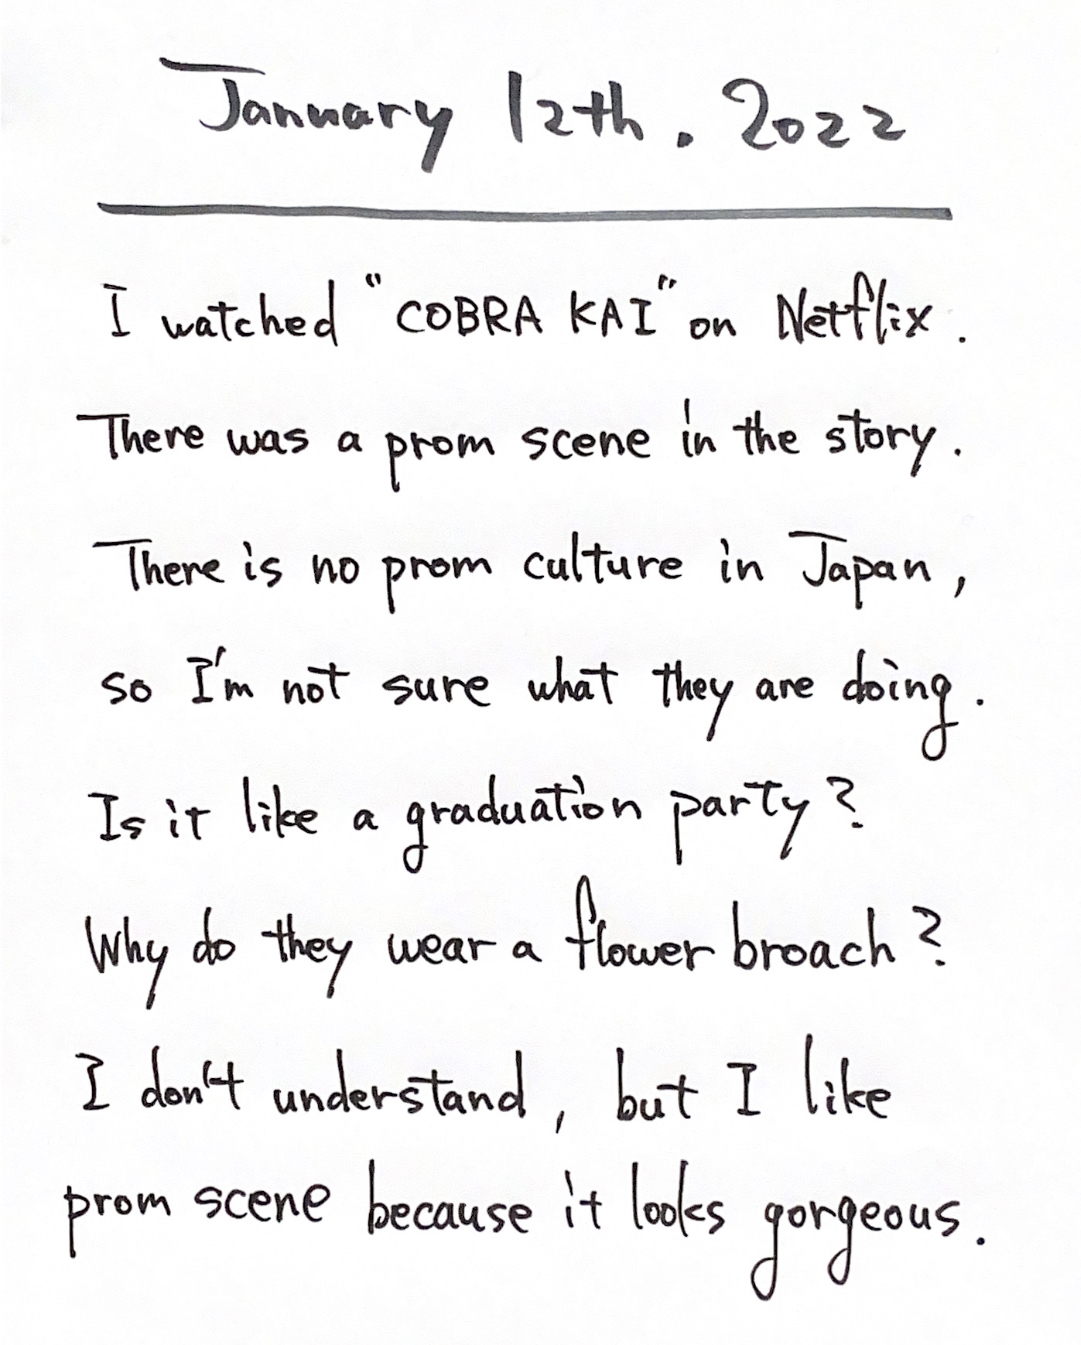 January 12th. 2022
I watched "COBRA KAI" on Netflix.
There was a prom scene in the story.
There is no prom culture in Japan,
so I'm not sure what they are doing.
Is it like a graduation party?
Why do they wear a flower broach?
I don't understand, but I like
prom scene because it looks gorgeous.